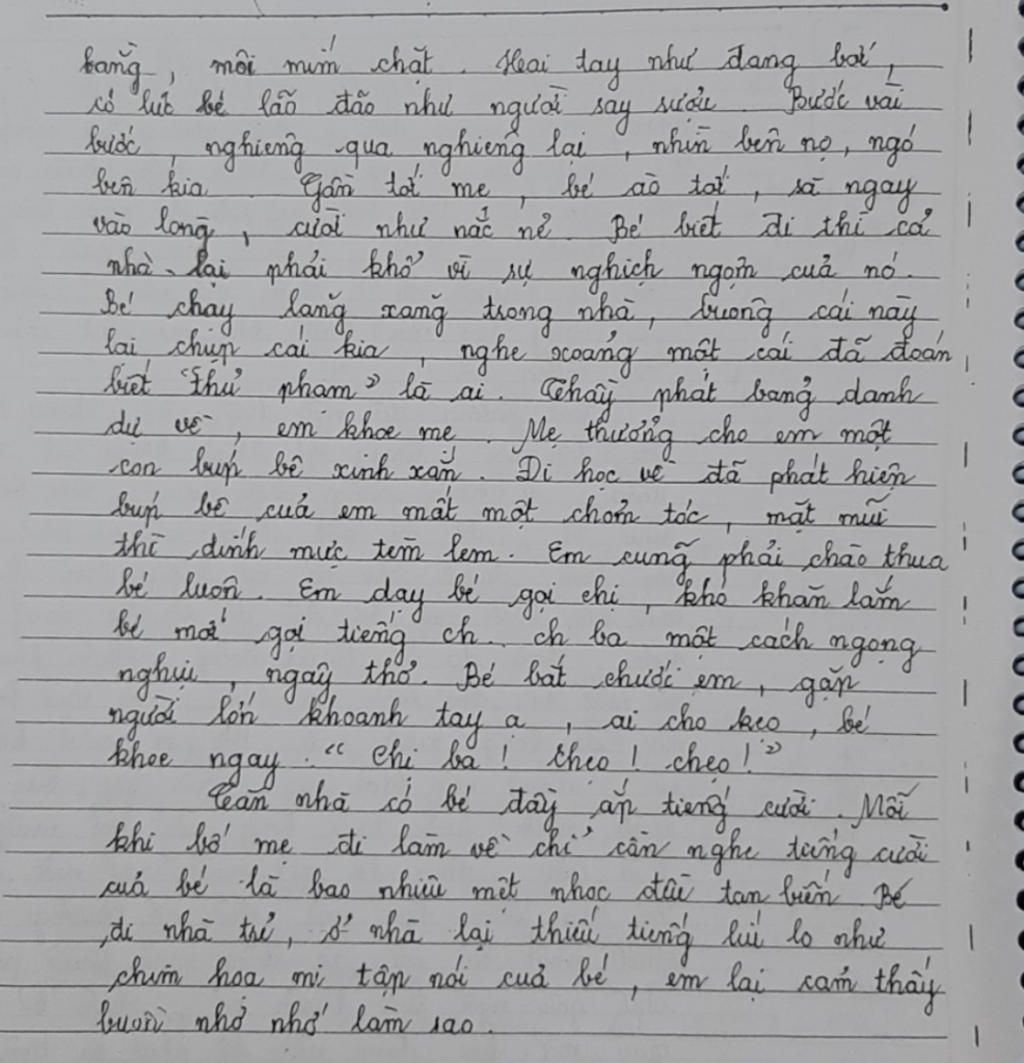 bằng, môi mím chặt. Hai tay như đang bơi,
có lúc bé lão đão như người say rượu. Bước vài
bước, nghiêng qua nghiêng lại, nhìn bên nọ, ngó
bên kia. Gần tới mẹ, bé ào tới, sà ngay
vào lòng, cười như nắc nẻ. Bé biết đi thì cả
nhà lại phải khổ vì sự nghịch ngợm của nó.
Bé chạy lăng xăng trong nhà, buông cái này
lại chụp cái kia, nghe xoảng một cái đã đoán
biết "thủ phạm" là ai. Thầy phát bảng danh
dự về, em khoe mẹ. Mẹ thưởng cho em một
con búp bê xinh xắn. Đi học về đã phát hiện
búp bê của em mất một chỏm tóc, mặt mũi
thì dính mực tèm lem. Em cũng phải chào thua
bé luôn. Em dạy bé gọi chị, khó khăn lắm
bé mới gọi tiếng ch. ch ba một cách ngọng
nghịu, ngây thơ. Bé bắt chước em, gặp
người lớn khoanh tay ạ, ai cho kẹo, bé
khoe ngay: "Chị ba! chẹo! chẹo!"
Căn nhà có bé đầy ắp tiếng cười. Mỗi
khi bố mẹ đi làm về chỉ cần nghe tiếng cười
của bé là bao nhiêu mệt nhọc đều tan biến. Bé
đi nhà trẻ, ở nhà lại thiếu tiếng líu lo như
chim hoạ mi tập nói của bé, em lại cảm thấy
buồn nhớ nhớ làm sao.